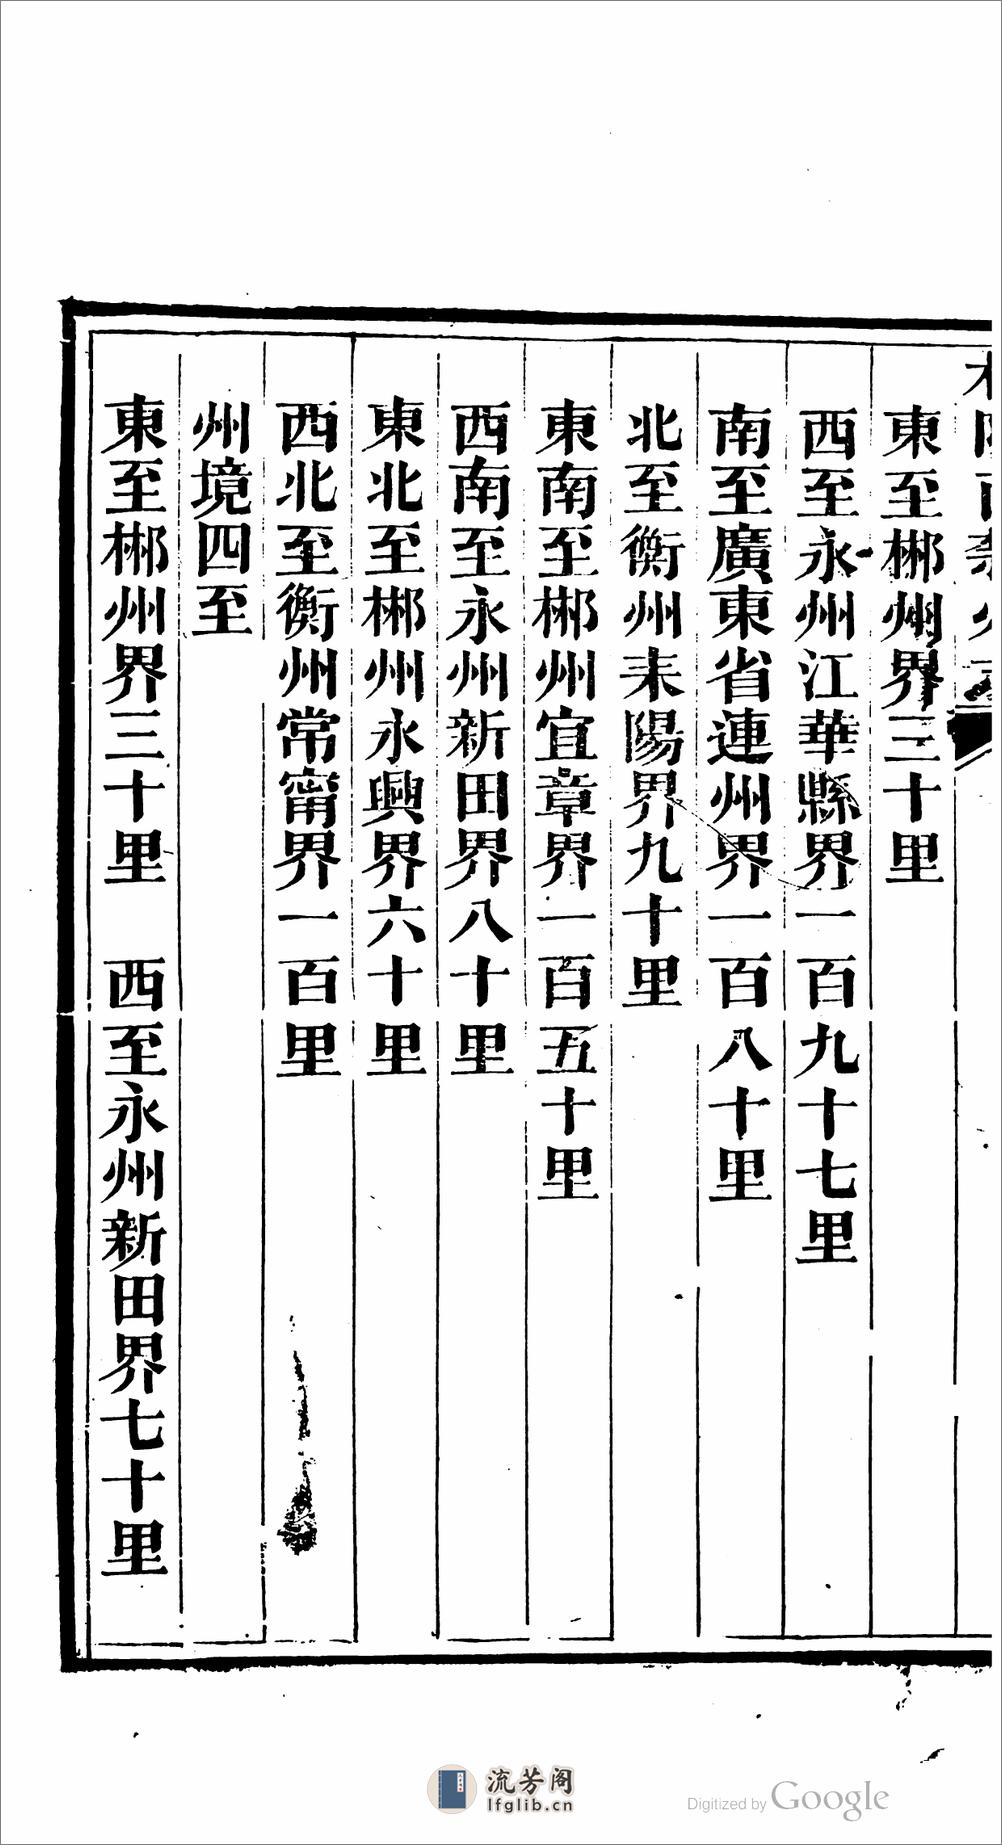 東至郴州界三十里
西至永州江華縣界一百九十七里
南至廣東省連州界一百八十里
北至衡州耒陽界九十里
東南至郴州宜章界一百五十里
西南至永州新田界八十里
東北至郴州永興界六十里
西北至衡州常甯界一百里
州境四至
東至郴州界三十里　西至永州新田界七十里
流芳阁
lfglib.cn
Digitized by Google